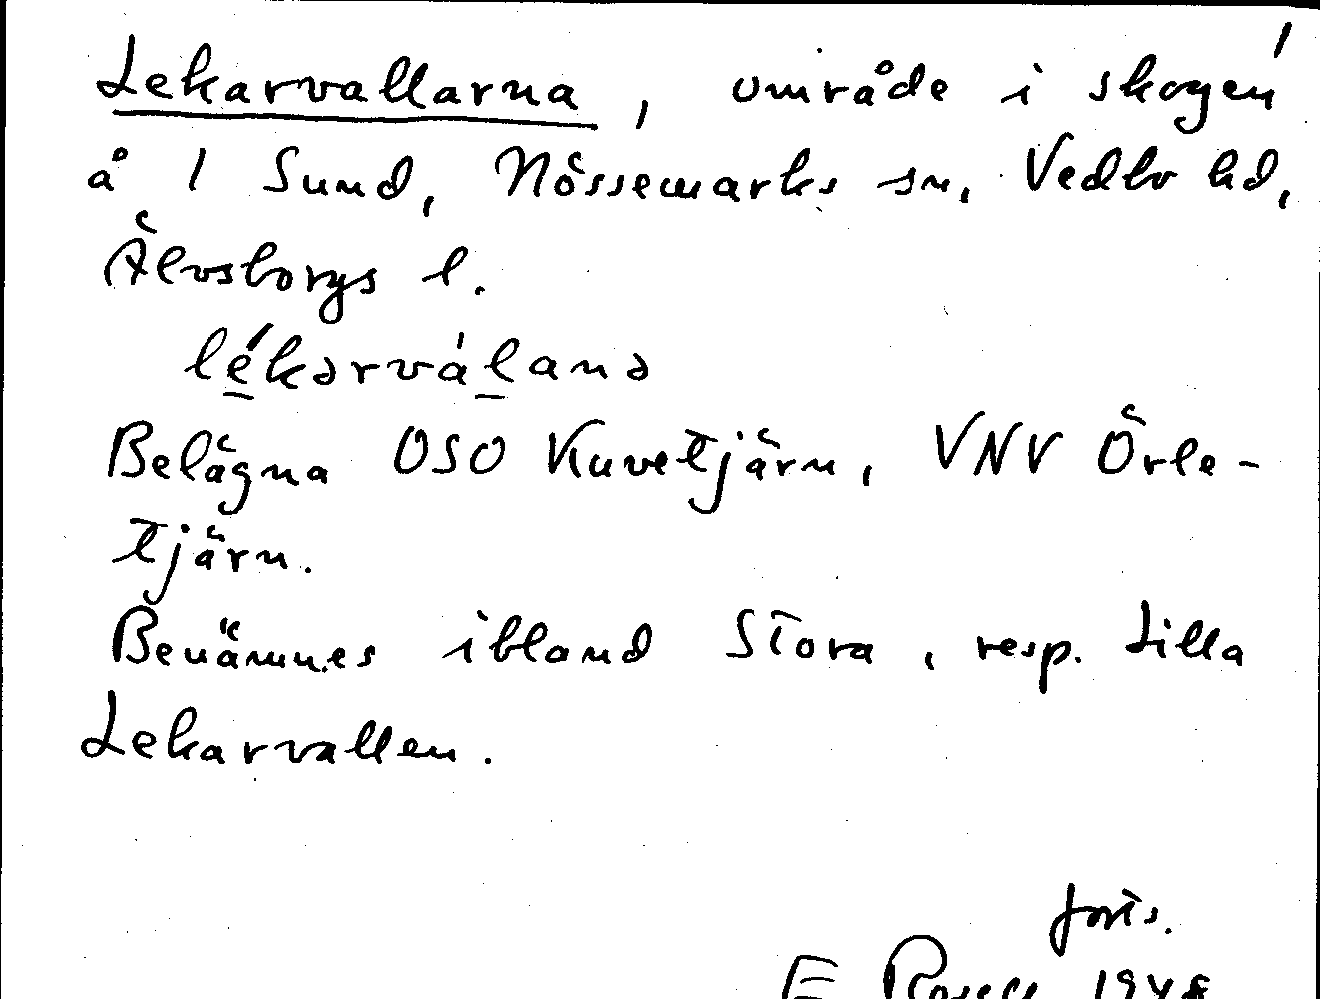 1
Lekarvallarna, område i skogen
å 1 Sund, Nössemarks sn, Vedbo hd,
Älvsborgs l.
lékərvàlanə
Belägna OSO Kuvetjärn, VNV Örle-
tjärn.
Benämnes ibland Stora, resp. Lilla
Lekarvallen.
forts.
E 1948